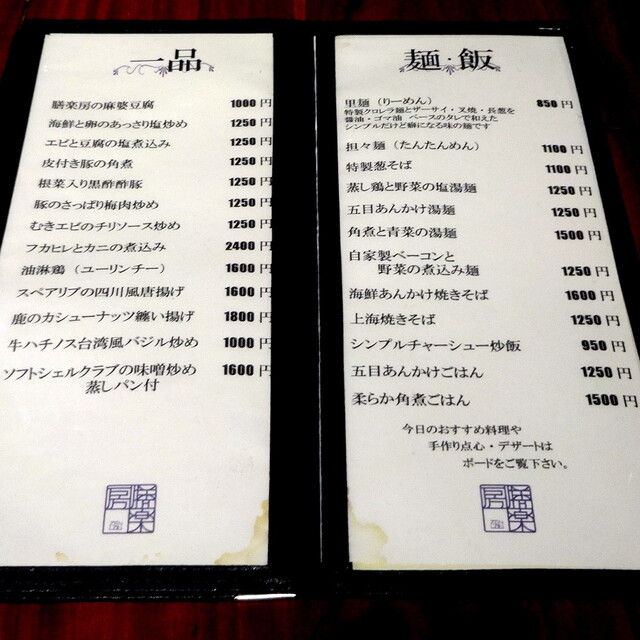 一品
膳楽房の麻婆豆腐 1000円
海鮮と卵のあっさり塩炒め 1250円
エビと豆腐の塩煮込み 1250円
皮付き豚の角煮 1250円
根菜入り黒酢酢豚 1250円
豚のさっぱり梅肉炒め 1250円
むきエビのチリソース炒め 1250円
フカヒレとカニの煮込み 2400円
油淋鶏（ユーリンチー） 1600円
スペアリブの四川風唐揚げ 1600円
鹿のカシューナッツ纏い揚げ 1800円
牛ハチノス台湾風バジル炒め 1000円
ソフトシェルクラブの味噌炒め 1600円
蒸しパン付
膳楽房
麺・飯
里麺（りーめん） 850円
特製クロレラ麺とザーサイ・叉焼・長葱を
醤油・ゴマ油 ベースのタレで和えた
シンプルだけど癖になる味の麺です
担々麺（たんたんめん） 1100円
特製葱そば 1100円
蒸し鶏と野菜の塩湯麺 1250円
五目あんかけ湯麺 1250円
角煮と青菜の湯麺 1500円
自家製ベーコンと
野菜の煮込み麺 1250円
海鮮あんかけ焼きそば 1600円
上海焼きそば 1250円
シンプルチャーシュー炒飯 950円
五目あんかけごはん 1250円
柔らか角煮ごはん 1500円
今日のおすすめ料理や
手作り点心・デザートは
ボードをご覧下さい。
膳楽房